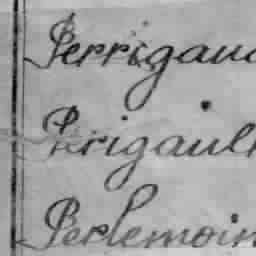 Perrigaud
Perigault
Perlemoin